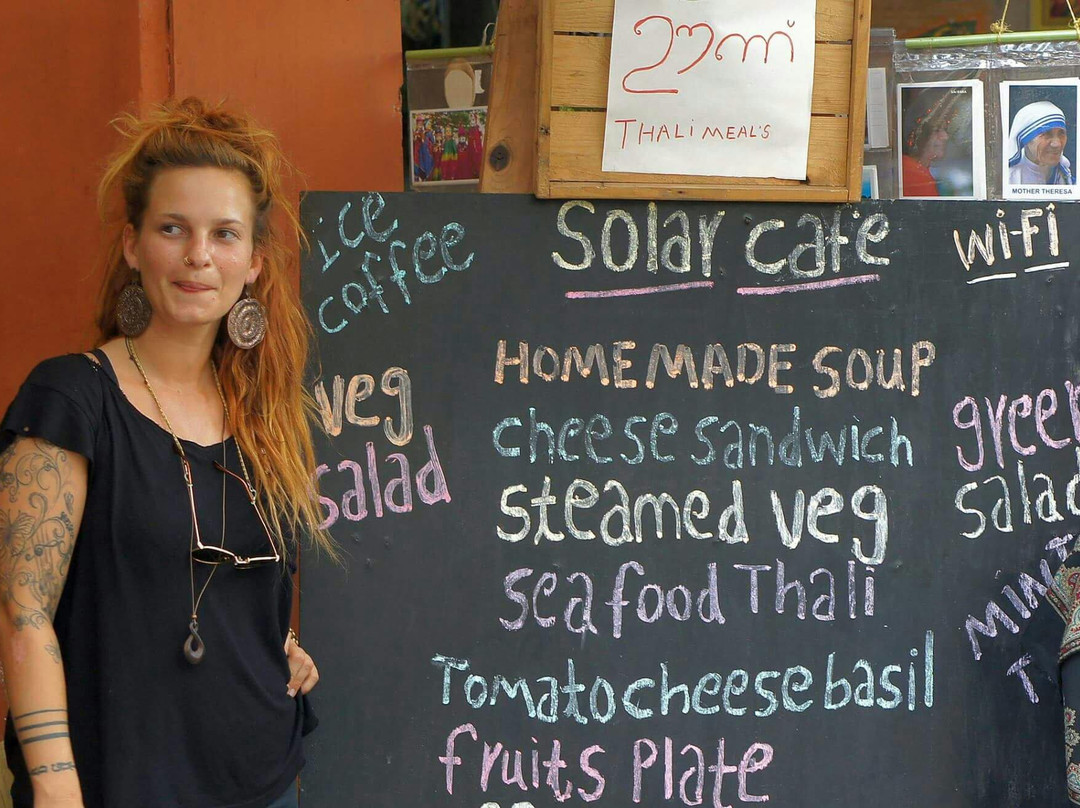 ഊണ്
THALI MEAL'S
MOTHER THERESA
ice coffee
Solar cafe
Wi-Fi
veg salad
HOMEMADE SOUP
cheese sandwich
steamed veg
seafood Thali
Tomato cheese basil
fruits Plate
green salad
MINT
T